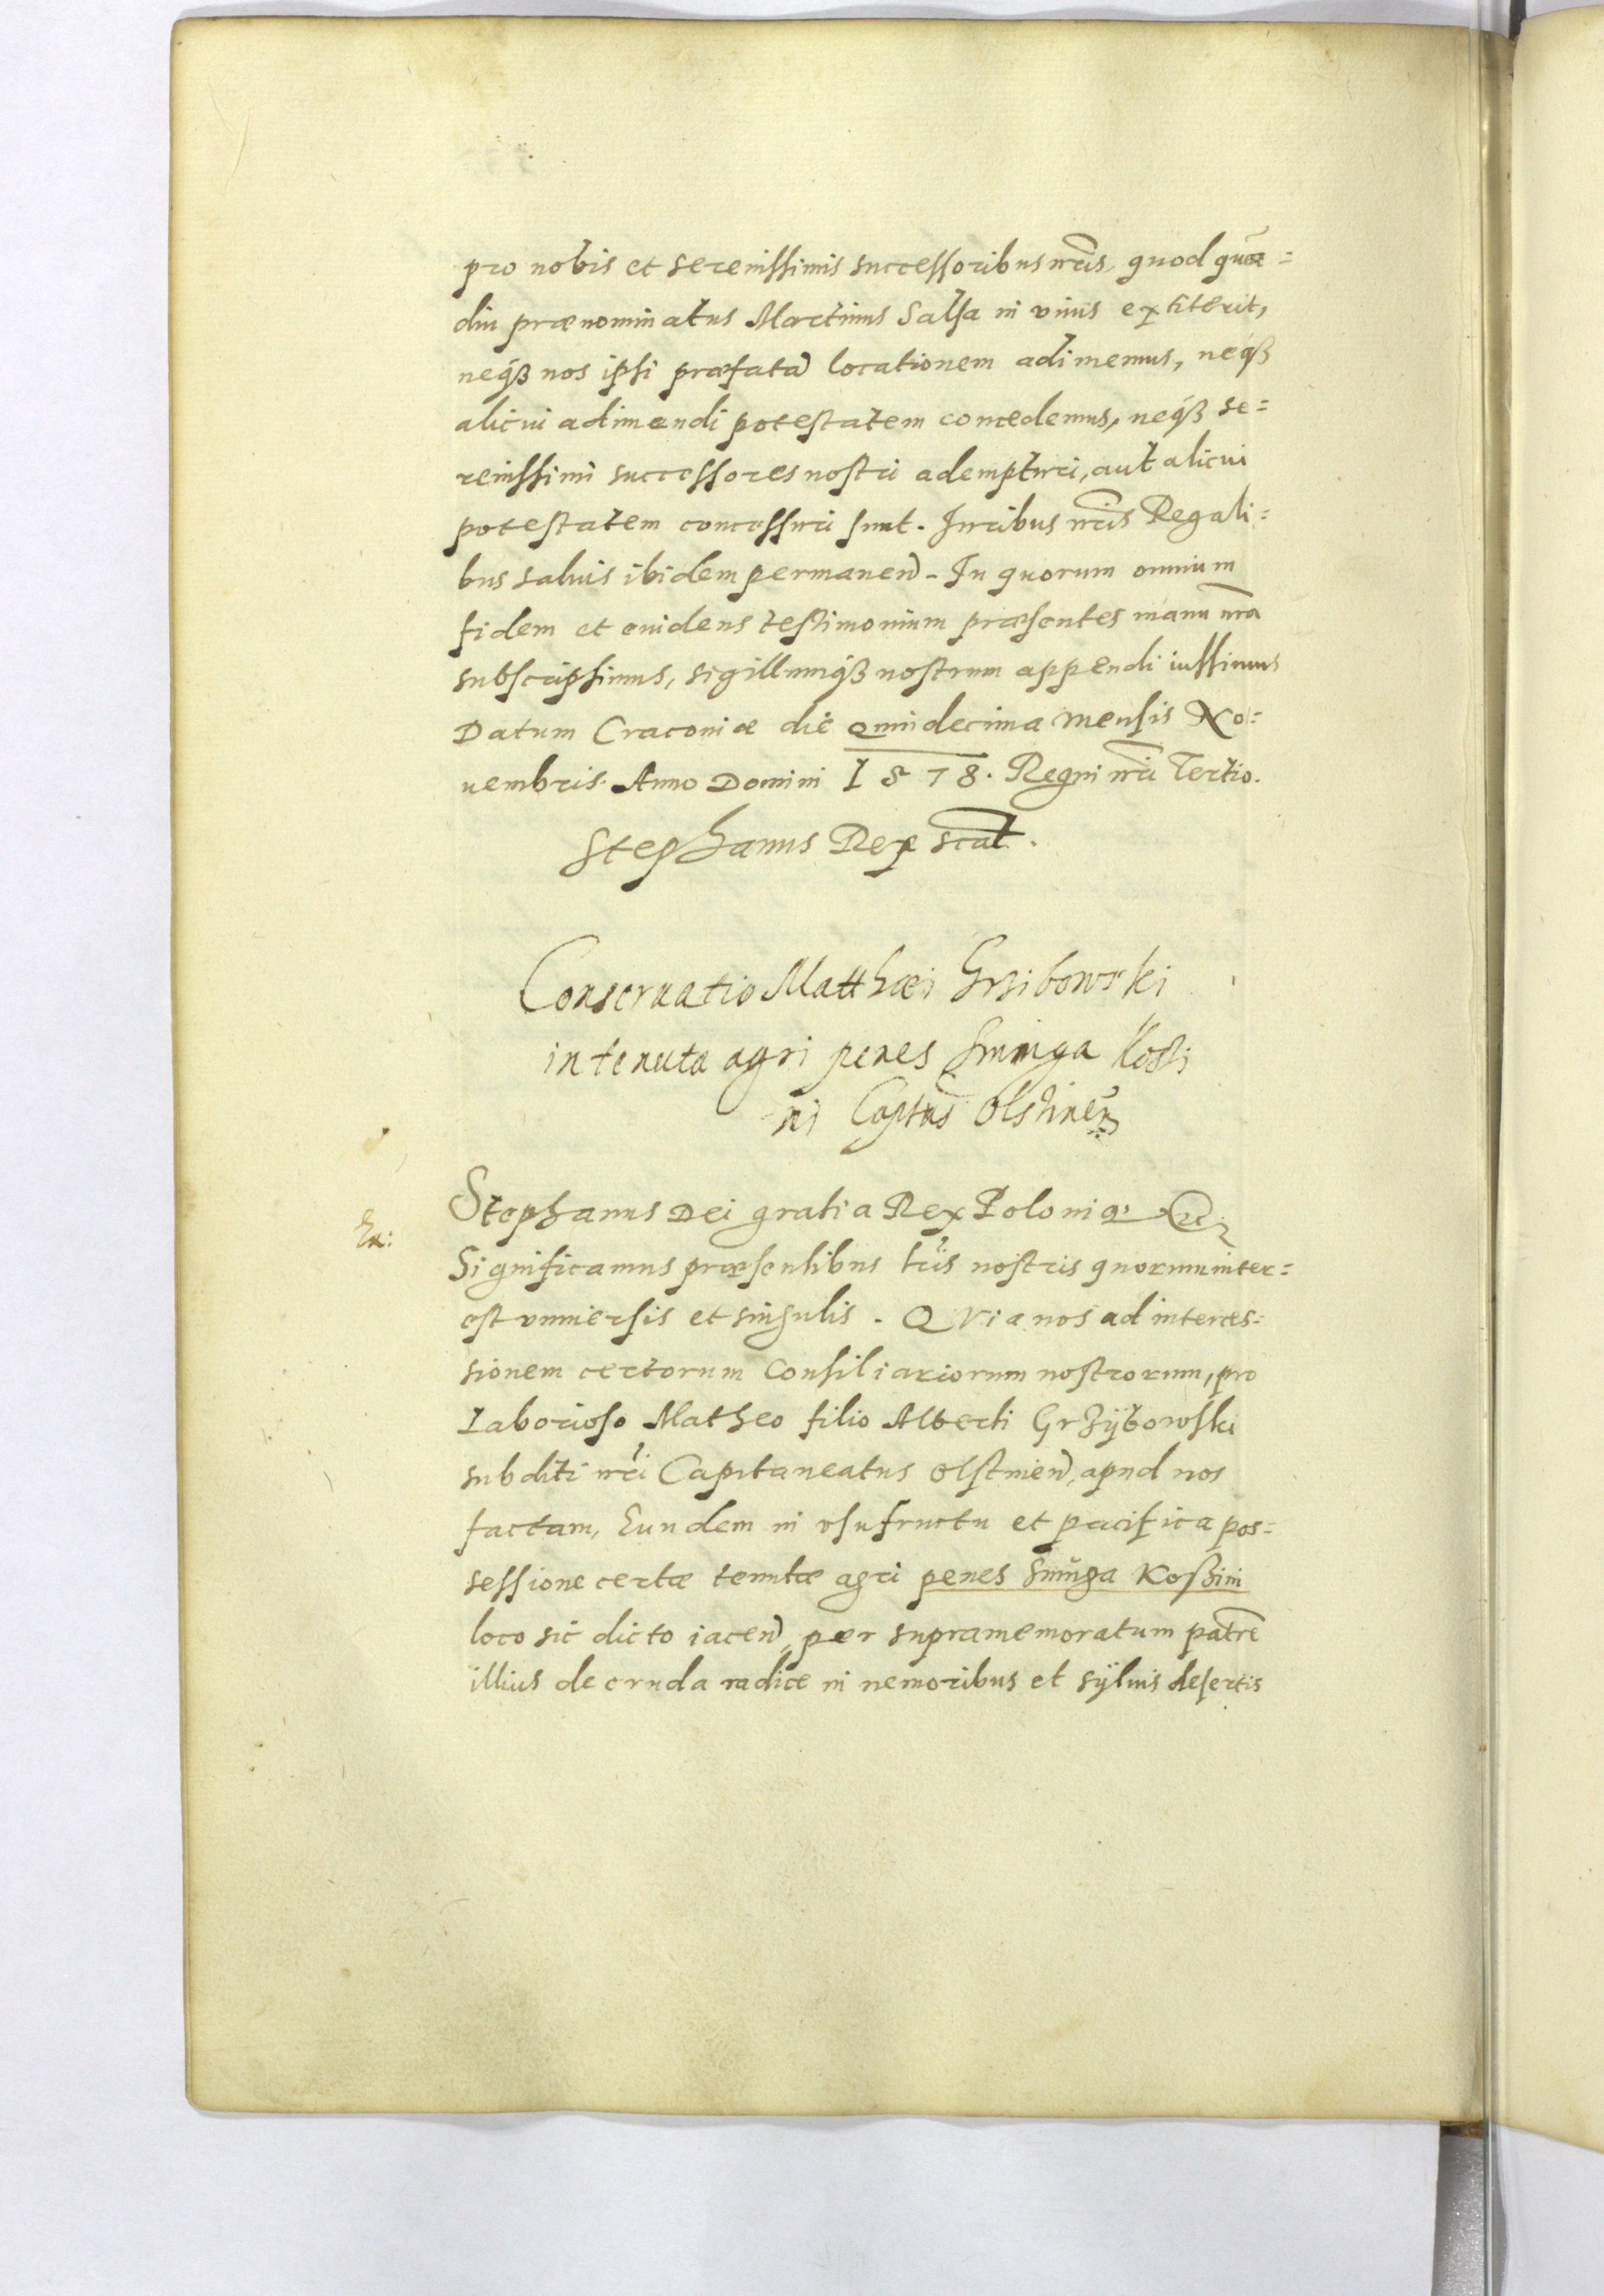 pro nobis et serenissimis successoribus nr̃is, quod quã=
diu prænominatus Martinus Salsa in viuis extiterit,
neq́ꝫ nos ipsi præfatã locationem adimemus, neq́ꝫ
alicui adimendi potestatem concedemus, neq́ꝫ se=
renissimi successores nostri adempturi, aut alicui
potestatem concessuri sunt. Iuribus nr̃is Regali=
bus saluis ibidem permaneñ. In quorum omnium
fidem et euidens testimonium præsentes manu nr̃a
subscripsimus, sigillumq́ꝫ nostrum appendi iussimus
Datum Cracouiæ die Quindecima mensis No=
uembris. Anno Domini 1578. Regni nr̃i Tertio.
Stephanus Rex scr̃at.
Conseruatio Matthæi Grzibowski
in tenuta agri penes Smuga Koszi
ni Capitus Olstineñ
Stephanus Dei gratia Rex Poloniæ etc.
Significamus præsentibus lr̃is nostris quorum inter=
est vniuersis et singulis. QVia nos ad interces=
sionem certorum Consiliariorum nostrorum, pro
Laborioso Matheo filio Alberti Grzÿbowski
subditi nr̃i Capitaneatus Olstineñ, apud nos
factam, Eundem in vsufructu et pacifica pos=
sessione certæ tenutæ agri penes Smuga Koszini
loco sic dicto iaceñ, per supramemoratum patrẽ
illius de cruda radice in nemoribus et sÿluis desertis